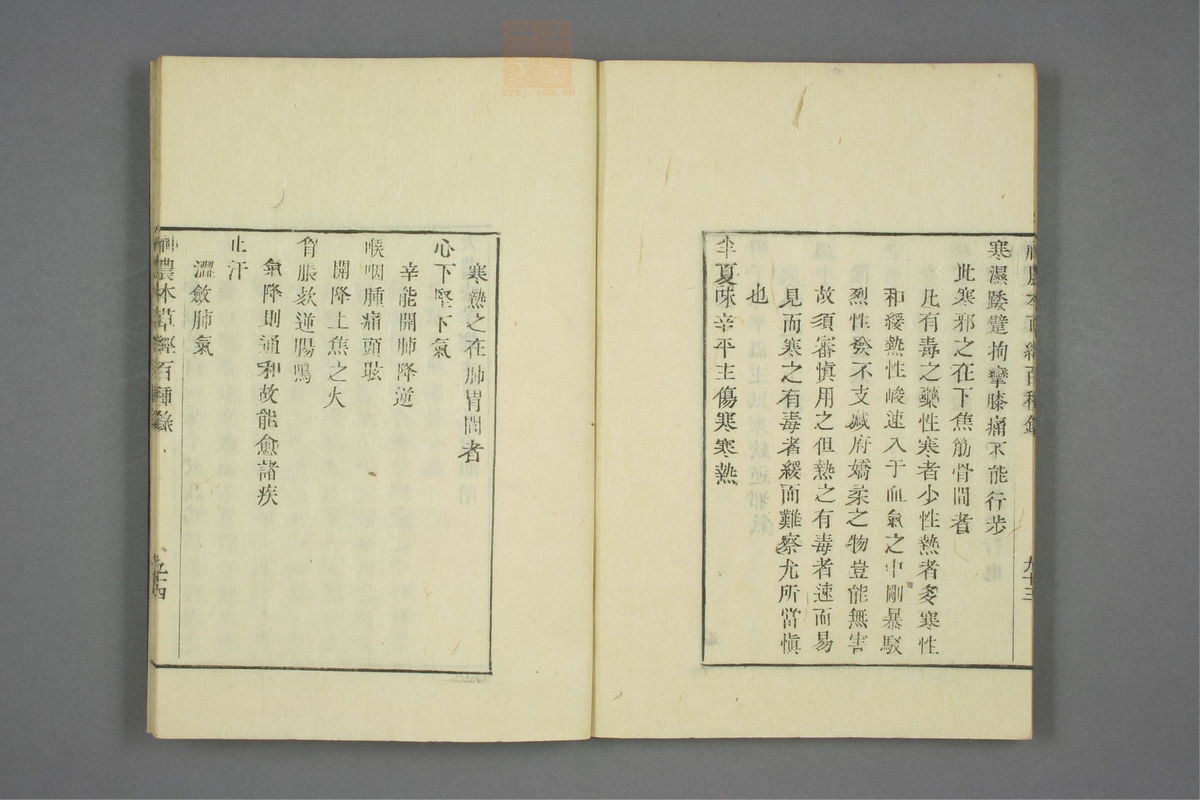 神農本草經百種錄
九十三
寒濕踒躄拘攣膝痛不能行步
此寒邪之在下焦筋骨間者
凡有毒之藥性寒者少性熱者多寒性
和緩熱性峻速入于血氣之中剛暴駁
烈性發不支臟府嬌柔之物豈能無害
故須審慎用之但熱之有毒者速而易
見而寒之有毒者緩而難察尤所當慎
也
半夏味辛平主傷寒寒熱
寒熱之在肺胃間者
心下堅下氣
辛能開肺降逆
喉咽腫痛頭眩
開降上焦之火
胷脹欬逆腸鳴
氣降則通和故能愈諸疾
止汗
澀斂肺氣
神農本草經百種錄
九十四
zysj.com.cn